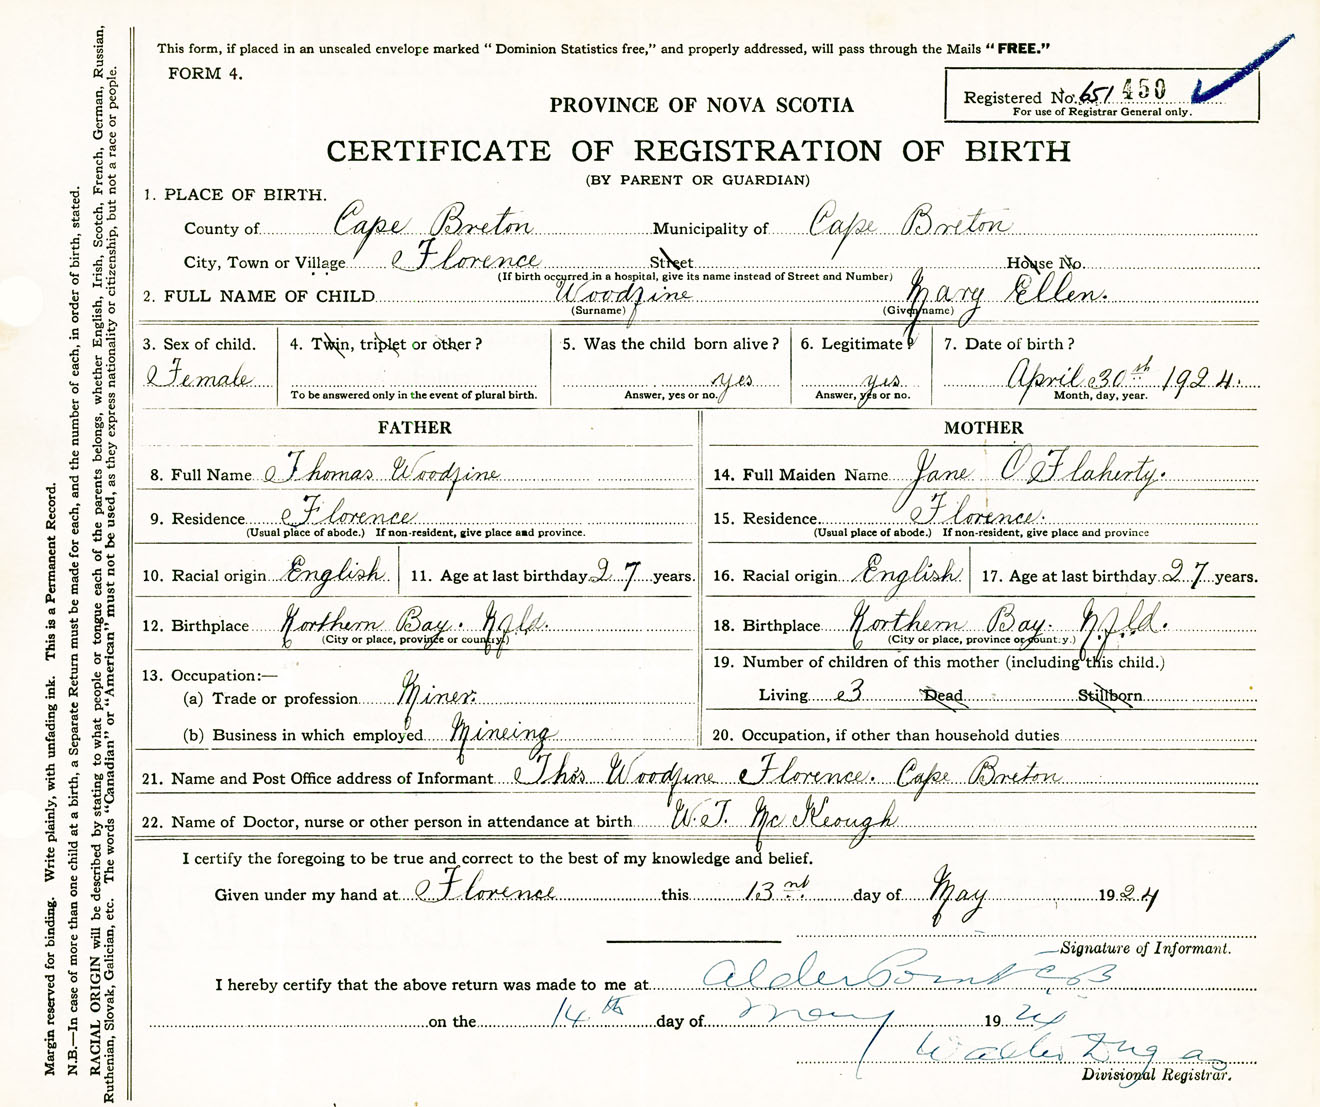 This form, if placed in an unsealed envelope marked "Dominion Statistics free," and properly addressed, will pass through the Mails "FREE."
FORM 4.
Registered No. 651 450
For use of Registrar General only.
PROVINCE OF NOVA SCOTIA
CERTIFICATE OF REGISTRATION OF BIRTH
(BY PARENT OR GUARDIAN)
1. PLACE OF BIRTH.
County of Cape Breton Municipality of Cape Breton
City, Town or Village Florence Street House No.
(If birth occurred in a hospital, give its name instead of Street and Number)
2. FULL NAME OF CHILD Woodfine Mary Ellen.
(Surname) (Given name)
3. Sex of child. 4. Twin, triplet or other? 5. Was the child born alive? 6. Legitimate? 7. Date of birth?
Female yes yes April 30th 1924.
To be answered only in the event of plural birth. Answer, yes or no. Answer, yes or no. Month, day, year.
FATHER MOTHER
8. Full Name Thomas Woodfine 14. Full Maiden Name Jane O Flaherty.
9. Residence Florence 15. Residence Florence.
(Usual place of abode.) If non-resident, give place and province. (Usual place of abode.) If non-resident, give place and province
10. Racial origin English 11. Age at last birthday 27 years. 16. Racial origin English 17. Age at last birthday 27 years.
12. Birthplace Northern Bay. Nfld. 18. Birthplace Northern Bay. Nfld.
(City or place, province or country.) (City or place, province or country.)
13. Occupation:— 19. Number of children of this mother (including this child.)
(a) Trade or profession Miner. Living 3 Dead Stillborn
(b) Business in which employed Mineing 20. Occupation, if other than household duties
21. Name and Post Office address of Informant Thos Woodfine Florence. Cape Breton
22. Name of Doctor, nurse or other person in attendance at birth W. T. Mc Keough
I certify the foregoing to be true and correct to the best of my knowledge and belief.
Given under my hand at Florence this 13nd day of May 1924
Signature of Informant.
I hereby certify that the above return was made to me at Alder Point C B
on the 14th day of May 1924
Walter Dugas
Divisional Registrar.
Margin reserved for binding. Write plainly, with unfading ink. This is a Permanent Record.
N.B.—In case of more than one child at a birth, a Separate Return must be made for each, and the number of each, in order of birth, stated.
RACIAL ORIGIN will be described by stating to what people or tongue each of the parents belongs, whether English, Irish, Scotch, French, German, Russian,
Ruthenian, Slovak, Galician, etc. The words "Canadian" or "American" must not be used, as they express nationality or citizenship, but not a race or people.